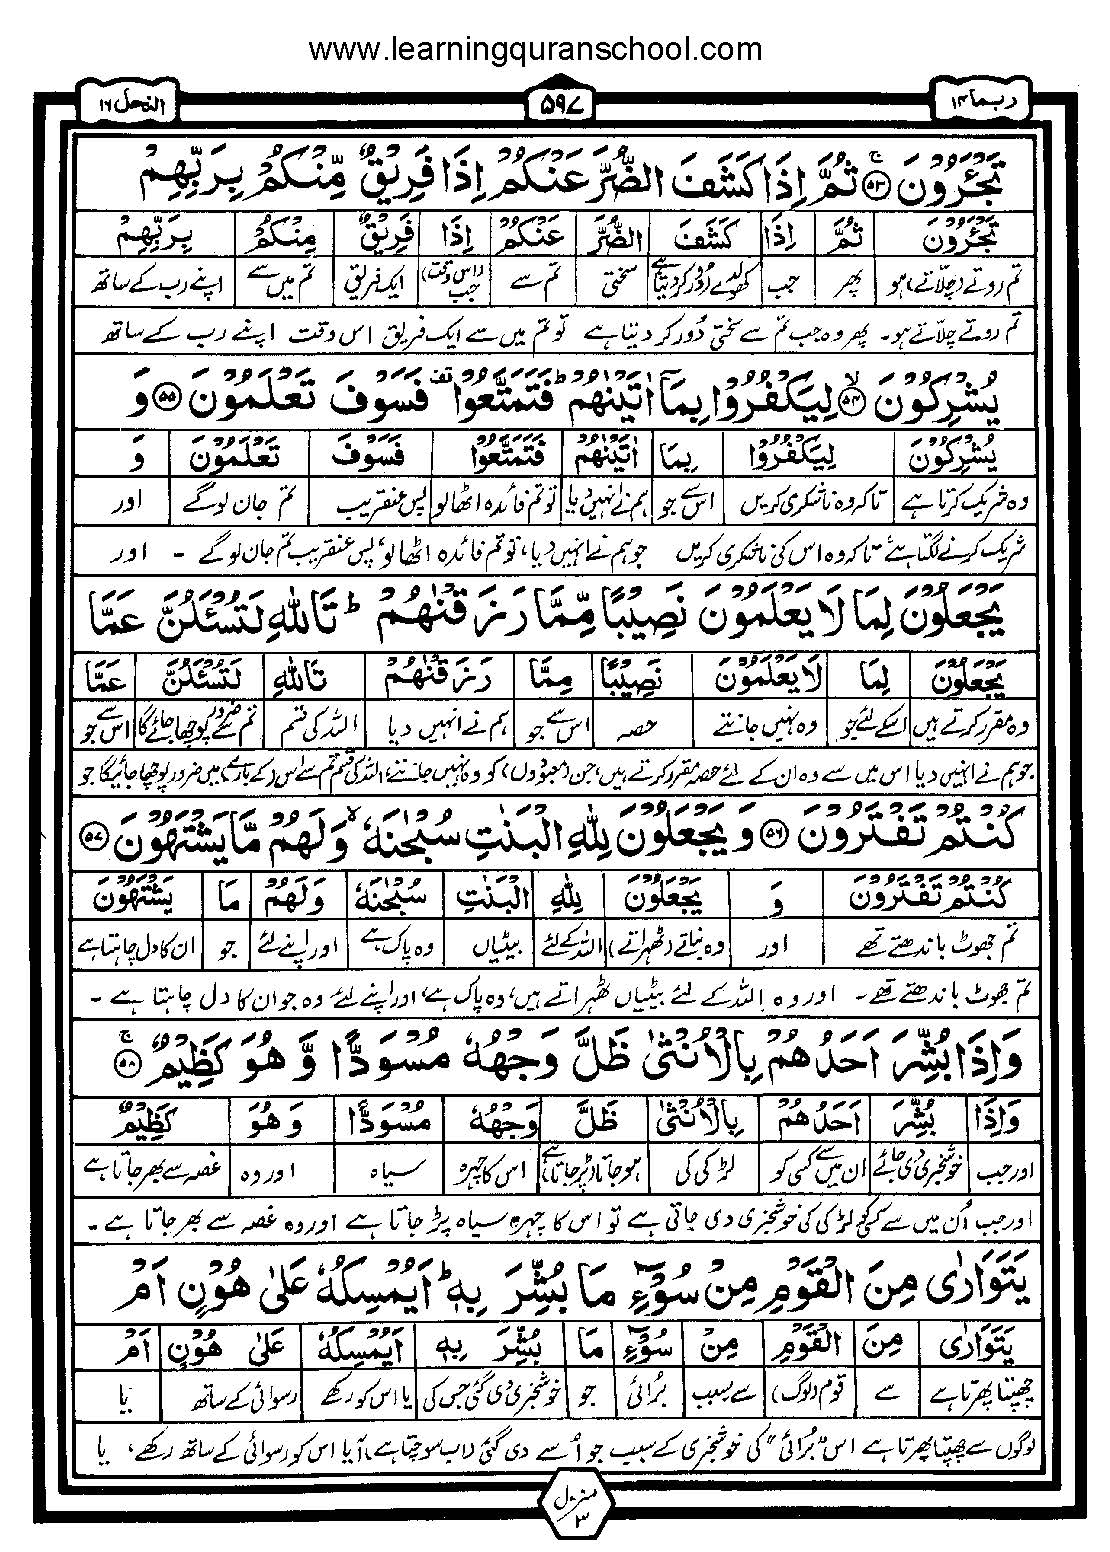 www.learningquranschool.com
ربما ۱۴
۵۹۷
النحل ۱۶
تَجْـَٔرُوْنَ ۝۵۳ ثُمَّ اِذَا كَشَفَ الضُّرَّ عَنْكُمْ اِذَا فَرِيْقٌ مِّنْكُمْ بِرَبِّهِمْ
تَجْـَٔرُوْنَ ثُمَّ اِذَا كَشَفَ الضُّرَّ عَنْكُمْ اِذَا فَرِيْقٌ مِنْكُمْ بِرَبِّهِمْ
تم روتے (چلّاتے) ہو پھر جب کھولدے (دُور کردیتا ہے) سختی تم سے (اس وقت) جب ایک فریق تم میں سے اپنے رب کے ساتھ
تم روتے چلّاتے ہو۔ پھر وہ جب تم سے سختی دُور کر دیتا ہے تو تم میں سے ایک فریق اس وقت اپنے رب کے ساتھ
يُشْرِكُوْنَ ۝۵۴ لِيَكْفُرُوْا بِمَآ اٰتَيْنٰهُمْ ؕ فَتَمَتَّعُوْا فَسَوْفَ تَعْلَمُوْنَ ۝۵۵ وَ
يُشْرِكُوْنَ لِيَكْفُرُوْا بِمَا اٰتَيْنٰهُمْ فَتَمَتَّعُوْا فَسَوْفَ تَعْلَمُوْنَ وَ
وہ شریک کرتا ہے تاکہ وہ ناشکری کریں اس سے جو ہم نے انہیں دیا تو تم فائدہ اٹھا لو پس عنقریب تم جان لوگے اور
شریک کرنے لگتا ہے تاکہ وہ اس کی ناشکری کریں جو ہم نے انہیں دیا، تو تم فائدہ اٹھا لو، پس عنقریب تم جان لوگے ۔ اور
يَجْعَلُوْنَ لِمَا لَا يَعْلَمُوْنَ نَصِيْبًا مِّمَّا رَزَقْنٰهُمْ ؕ تَاللّٰهِ لَتُسْـَٔلُنَّ عَمَّا
يَجْعَلُوْنَ لِمَا لَا يَعْلَمُوْنَ نَصِيْبًا مِمَّا رَزَقْنٰهُمْ تَاللّٰهِ لَتُسْـَٔلُنَّ عَمَّا
وہ مقرر کرتے ہیں اسکے لئے جو وہ نہیں جانتے حصہ اس سے جو ہم نے انہیں دیا اللہ کی قسم تم سے ضرور پوچھا جائے گا اس سے جو
جو ہم نے انہیں دیا اس میں سے وہ ان کے لئے حصہ مقرر کرتے ہیں، جن (معبودوں) کو وہ نہیں جانتے، اللہ کی قسم تم سے اس (کے بارے) میں ضرور پوچھا جائیگا جو
كُنْتُمْ تَفْتَرُوْنَ ۝۵۶ وَ يَجْعَلُوْنَ لِلّٰهِ الْبَنٰتِ سُبْحٰنَهٗ ۙ وَلَهُمْ مَّا يَشْتَهُوْنَ ۝۵۷
كُنْتُمْ تَفْتَرُوْنَ وَ يَجْعَلُوْنَ لِلّٰهِ الْبَنٰتِ سُبْحٰنَهٗ وَلَهُمْ مَا يَشْتَهُوْنَ
تم جھوٹ باندھتے تھے اور وہ بناتے (ٹھہراتے) اللہ کے لئے بیٹیاں وہ پاک ہے اور اپنے لئے جو ان کا دل چاہتا ہے
تم جھوٹ باندھتے تھے ۔ اور وہ اللہ کے لئے بیٹیاں ٹھہراتے ہیں، وہ پاک ہے، اور اپنے لئے وہ جو ان کا دل چاہتا ہے ۔
وَاِذَا بُشِّرَ اَحَدُهُمْ بِالْاُنْثٰى ظَلَّ وَجْهُهٗ مُسْوَدًّا وَّ هُوَ كَظِيْمٌ ۝۵۸
وَاِذَا بُشِّرَ اَحَدُهُمْ بِالْاُنْثٰى ظَلَّ وَجْهُهٗ مُسْوَدًّا وَ هُوَ كَظِيْمٌ
اور جب خوشخبری دی جائے ان میں سے کسی کو لڑکی کی ہو جاتا (پڑ جاتا) ہے اس کا چہرہ سیاہ اور وہ غصہ سے بھر جاتا ہے
اور جب اُن میں سے کسی کو لڑکی کی خوشخبری دی جاتی ہے تو اس کا چہرہ سیاہ پڑ جاتا ہے اور وہ غصہ سے بھر جاتا ہے ۔
يَتَوَارٰى مِنَ الْقَوْمِ مِنْ سُوْٓءِ مَا بُشِّرَ بِهٖ ؕ اَيُمْسِكُهٗ عَلٰى هُوْنٍ اَمْ
يَتَوَارٰى مِنَ الْقَوْمِ مِنْ سُوْٓءِ مَا بُشِّرَ بِهٖ اَيُمْسِكُهٗ عَلٰى هُوْنٍ اَمْ
چھپتا پھرتا ہے سے قوم (لوگ) سے بسبب بُرائی جو خوشخبری دی گئی جس کی یا اس کو رکھے رسوائی کے ساتھ یا
لوگوں سے چھپتا پھرتا ہے اس "بُرائی" کی خوشخبری کے سبب جو اُسے دی گئی (اب سوچتا ہے) آیا اس کو رسوائی کے ساتھ رکھے، یا
منزل ۳